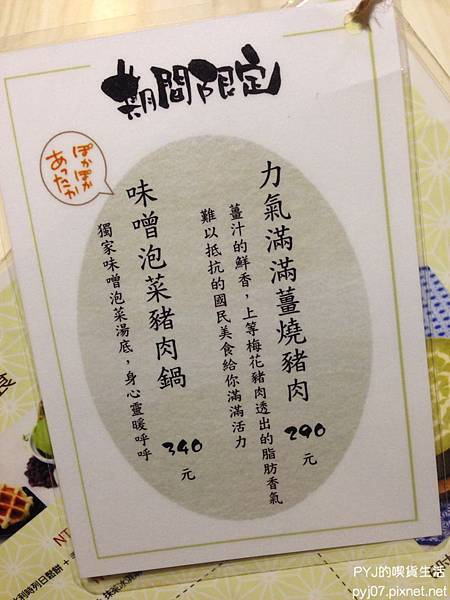 期間限定
ぽかぽか
あったか
力氣滿滿薑燒豬肉 290元
薑汁的鮮香，上等梅花豬肉透出的脂肪香氣
難以抵抗的國民美食給你滿滿活力
味噌泡菜豬肉鍋 340元
獨家味噌泡菜湯底，身心靈暖呼呼
NT
PYJ的喫貨生活
pyj07.pixnet.net